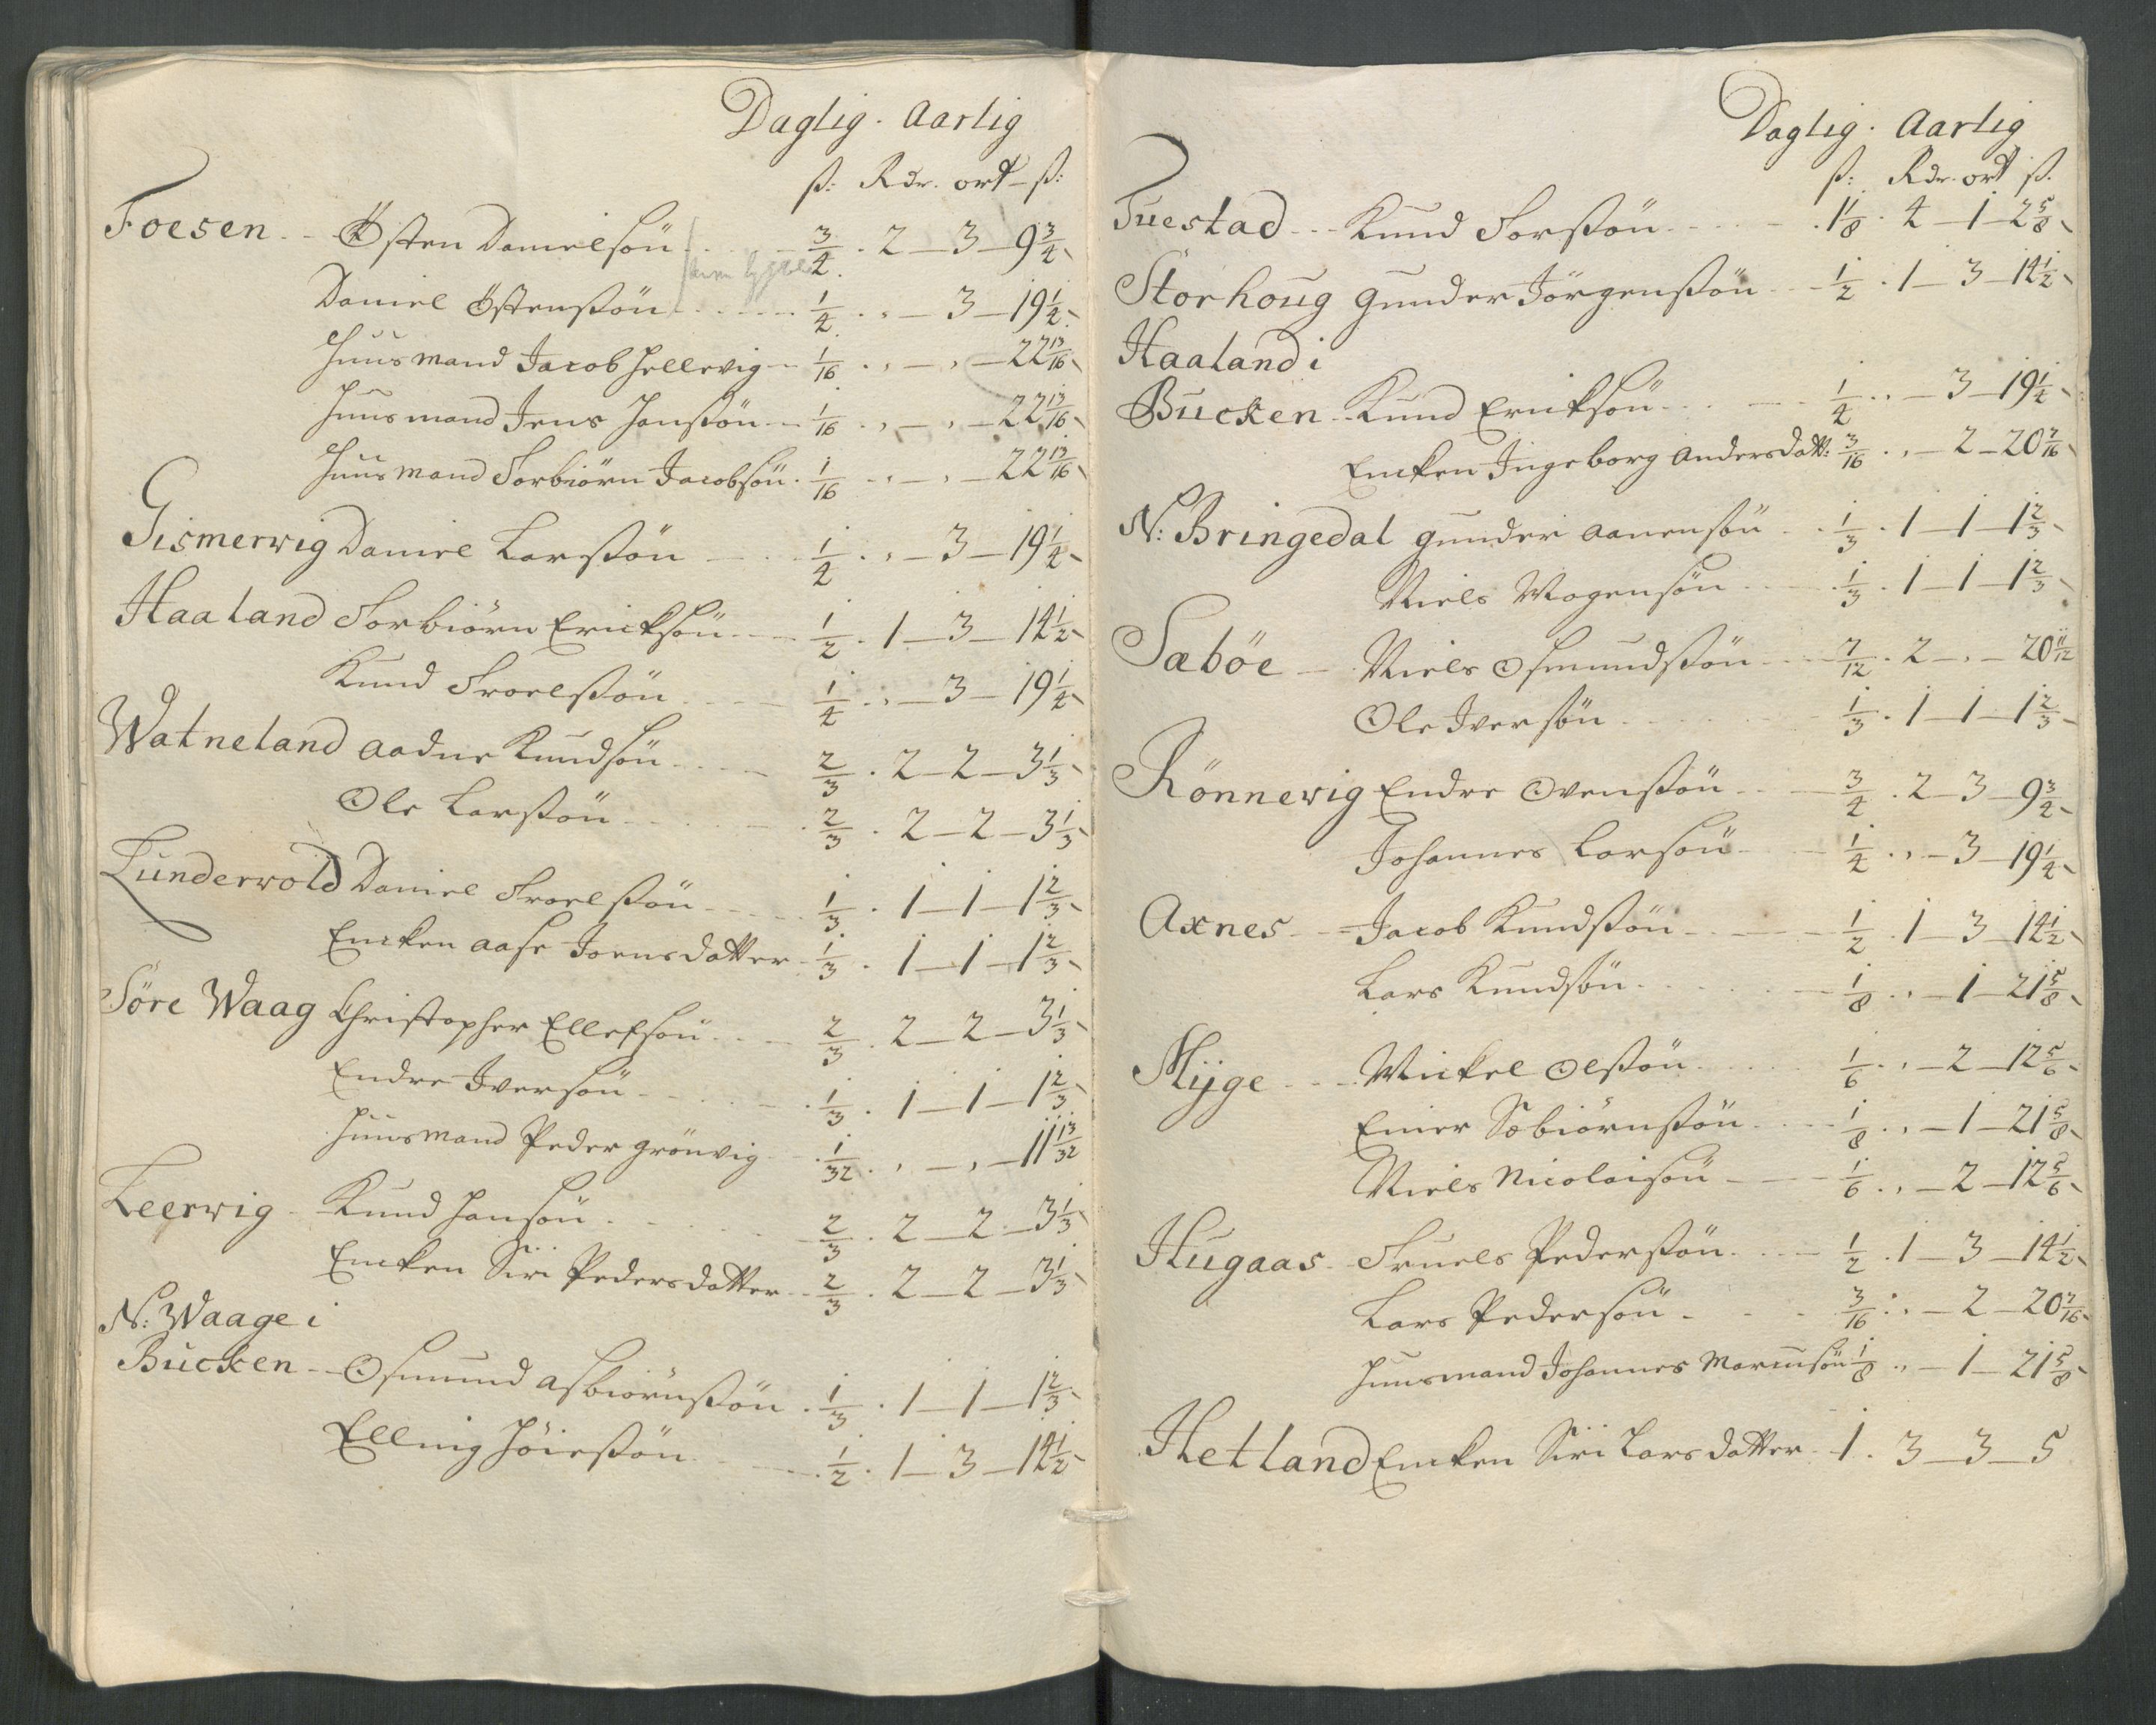 Daglig. Aarlig
ß: Rdr. ort - ß:
Foesen - Østen Danielsøn . . 3/4 . 2 - 3 - 9 3/4
Daniel Østensøn . . . . 1/4 . , - 3 - 19 1/4
Huusmand Jacob Hellevig - 1/16 . , - , - 22 13/16
Huusmand Jens Hansøn - 1/16 . , - , - 22 13/16
Huusmand Torbiørn Jacobsøn . 1/16 . , - , - 22 13/16
Gismervig Daniel Larsøn . . 1/4 . , - 3 - 19 1/4
Haaland Torbiørn Ericksøn . . 1/2 . 1 - 3 - 14 1/2
Knud Troelsøn . . 1/4 . , - 3 - 19 1/4
Watneland Aadne Knudsøn . . 2/3 . 2 - 2 - 3 1/3
Ole Larsøn . . 2/3 . 2 - 2 - 3 1/3
Lunderwold Daniel Troelsøn . . 1/3 . 1 - 1 - 1 2/3
Encken Aase Joensdatter . 1/3 . 1 - 1 - 1 2/3
Søre Waag Christopher Ellefsøn . . 2/3 . 2 - 2 - 3 1/3
Endre Iversøn . . 1/3 . 1 - 1 - 1 2/3
Huusmand Peder Grønvig . . 1/32 . , - , - 11 13/32
Leerwig - Knud Hansøn . . 2/3 . 2 - 2 - 3 1/3
Encken Siri Pedersdatter . . 2/3 . 2 - 2 - 3 1/3
N: Waage i
Bucken - Osmund Asbiørnsøn . 1/3 . 1 - 1 - 1 2/3
Elling Høiesøn . . 1/2 . 1 - 3 - 14 1/2
Daglig. Aarlig
ß: Rdr. ort ß.
Tuestad - - Knud Torsøn . . 1 1/8 . 4 - 1 - 2 5/8
Storhoug Gunder Jørgensøn . . 1/2 . 1 - 3 - 14 1/2
Haaland i
Bucken - Knud Ericksøn . . 1/4 . , - 3 - 19 1/4
Encken Ingeborg Andersdatt: 3/16 . , - 2 - 20 7/16
N: Bringedal Gunder Aanensøn . . 1/3 . 1 - 1 - 1 2/3
Niels Mogensøn . . 1/3 . 1 - 1 - 1 2/3
Sæbøe - Niels Osmundsøn . . 7/12 . 2 - , - 20 11/12
Ole Iversøn . . 1/3 . 1 - 1 - 1 2/3
Rønnevig Endre Ovensøn . . 3/4 . 2 - 3 - 9 3/4
Johannes Larsøn . . 1/4 . , - 3 - 19 1/4
Axnes - - Jacob Knudsøn . . 1/2 . 1 - 3 - 14 1/2
Lars Knudsøn . . 1/8 . , - 1 - 21 5/8
Myge - - Mickel Olsøn . . 1/6 . , - 2 - 12 5/6
Einer Sæbiørnsøn . . 1/8 . , - 1 - 21 5/8
Niels Nicolaisøn . . 1/6 . , - 2 - 12 5/6
Hugaas - Truels Pedersøn . . 1/2 . 1 - 3 - 14 1/2
Lars Pedersøn . . 3/16 . , - 2 - 20 7/16
Huusmand Johannes 1/8 . , - 1 - 21 5/8
Hetland Encken Siri Larsdatter . 1 . 3 - 3 - 5